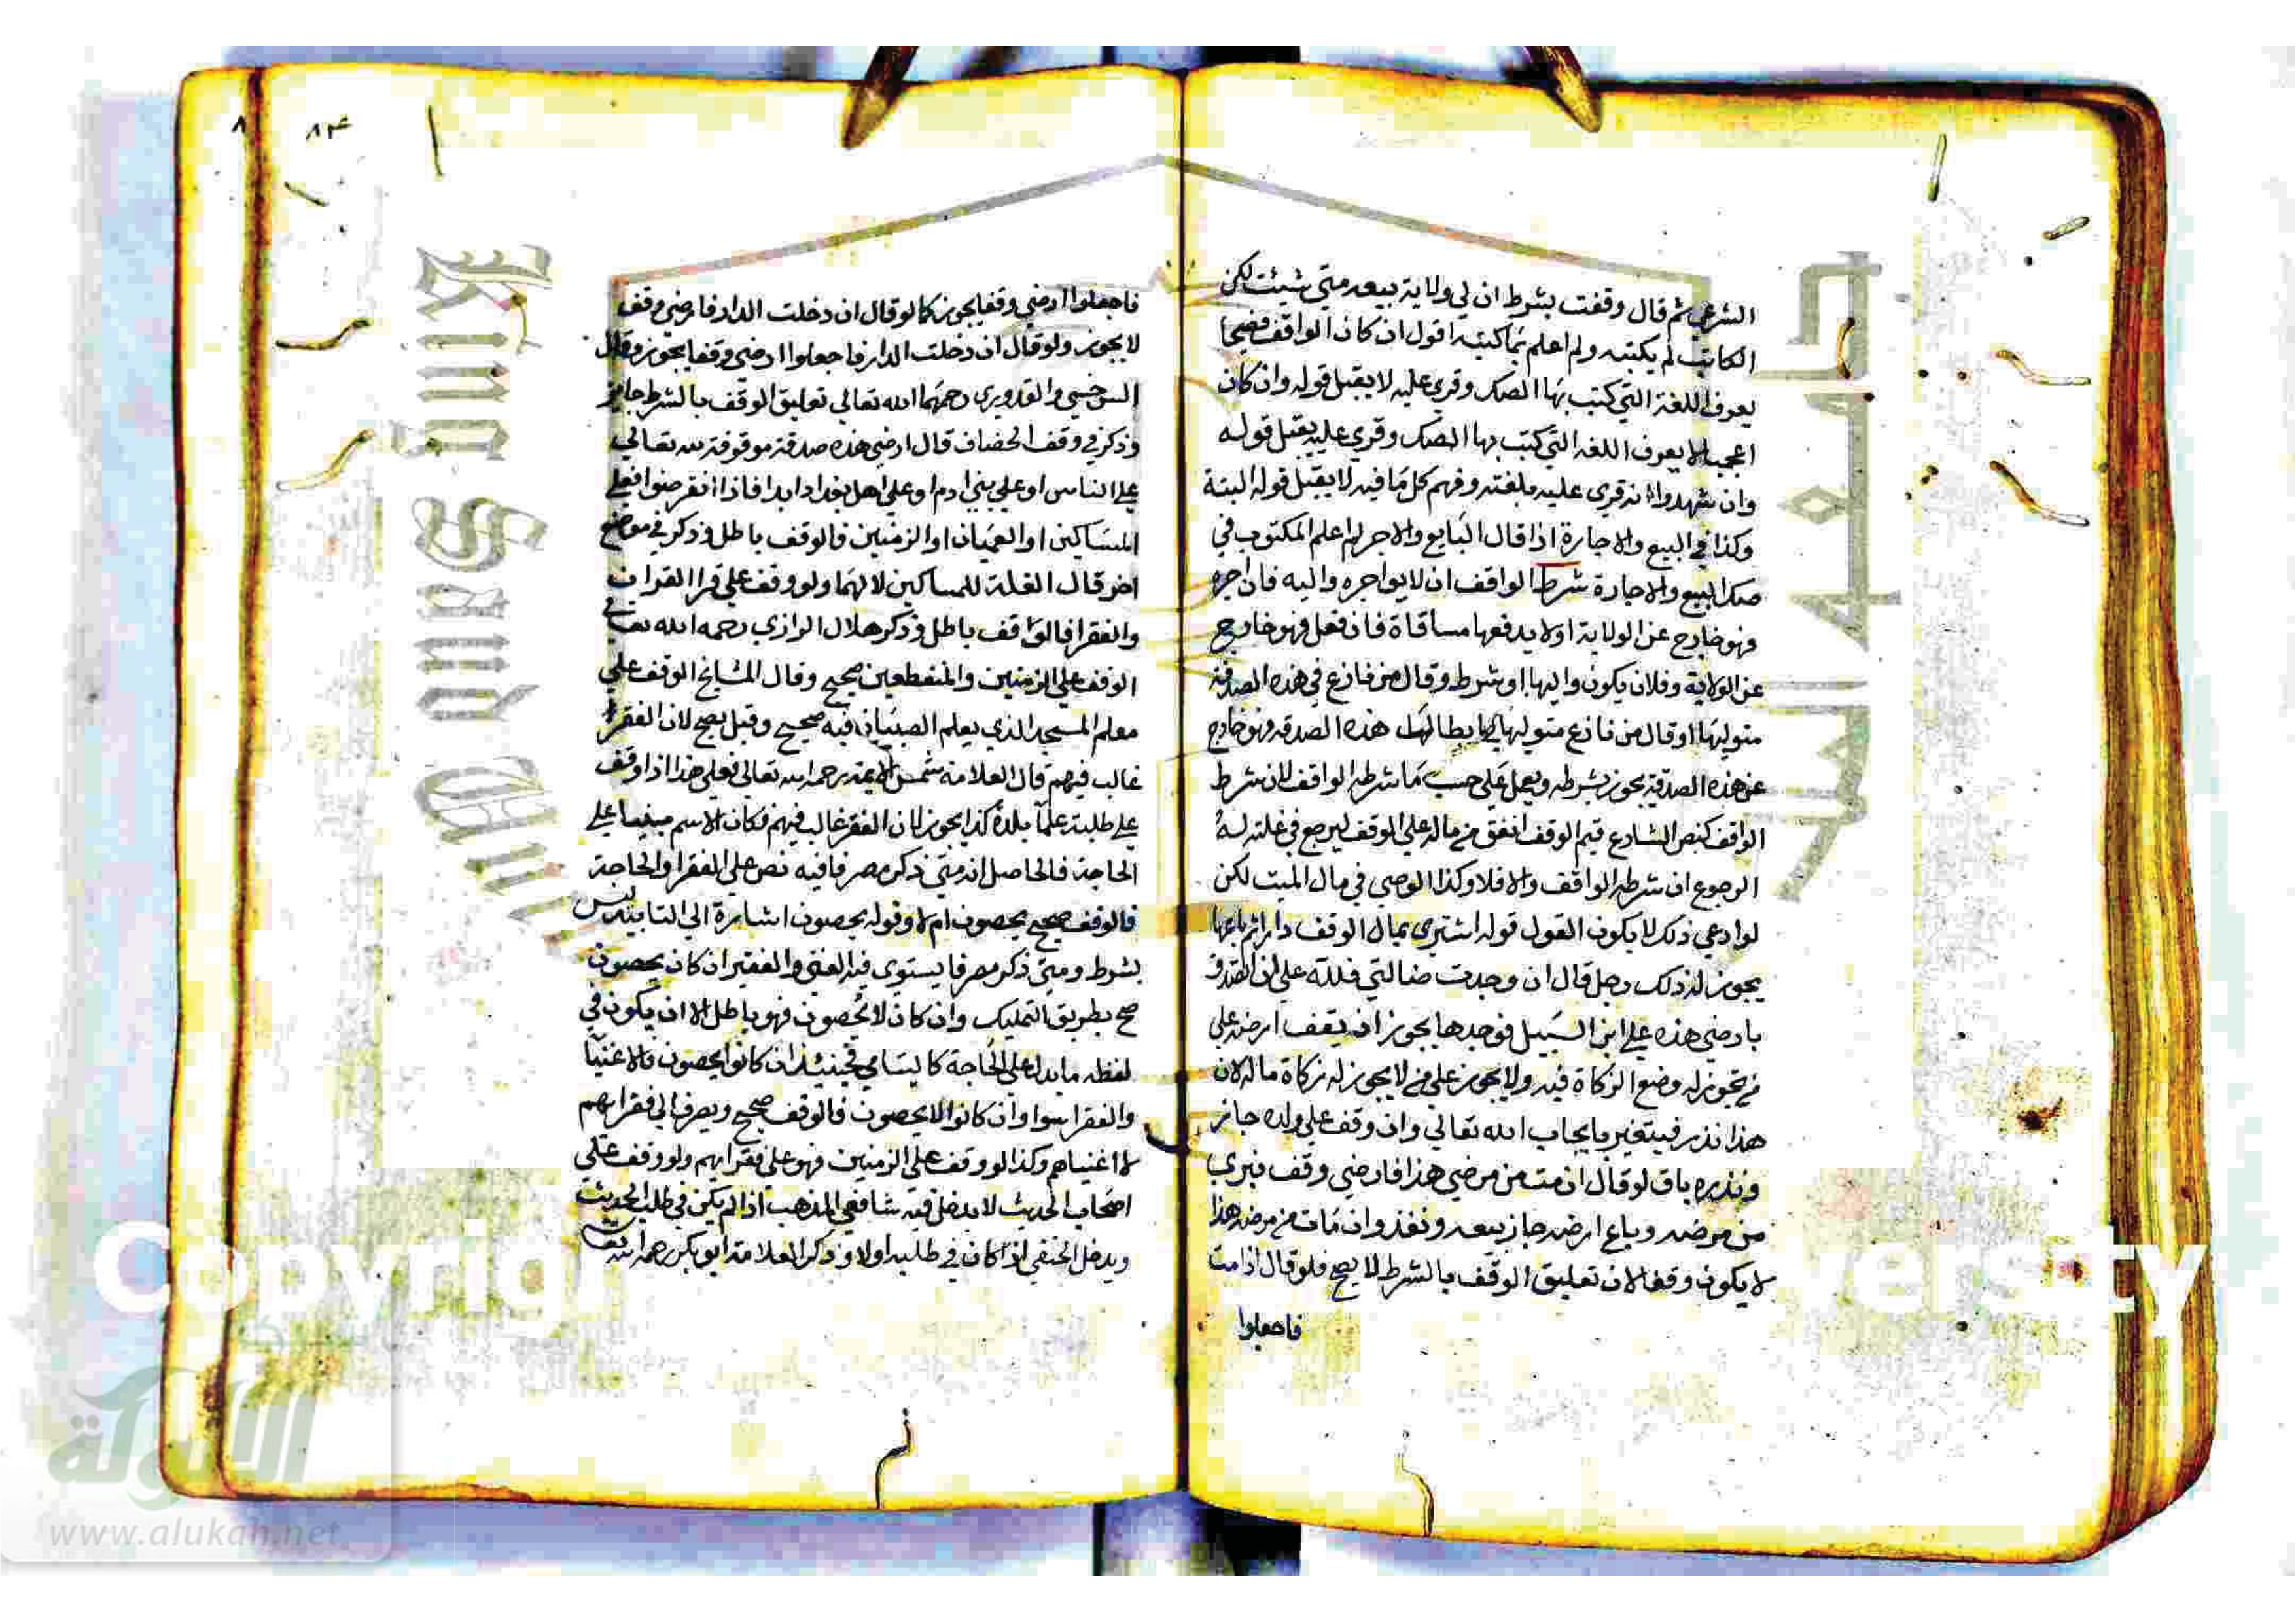 الشرعي ثم قال وقفت بشرط ان لي ولاية بيعه متي شيئت لكن
الكاتب لم يكتبه ولم اعلم بما كتبه اقول ان كان الواقف فصيحا
يعرف اللغة التي كتب بها الصك وقري عليه لا يقبل قوله وان كان
اعجميا لا يعرف اللغه التي كتب بها الصك وقري عليه يقبل قوله
وان شهدوا انه قري عليه بلغته وفهم كل ما فيه لا يقبل قوله البتة
وكذا في البيع والاجارة اذا قال البايع والاجر لم اعلم المكتوب في
صك البيع والاجارة شرط الواقف ان لا يواجره واليه فان اجره
فهو خارج عن الولاية او لا يدفعها مساقاة فان فعل فهو خارج
عن الولاية وفلان يكون واليها او شرط وقال من نازع في هذه الصدقة
متوليها او قال من نازع متوليها هذه الصدقه فهو خارج
عن هذه الصدقة يجوز بشرطه ويعمل علي حسب ما شرطه الواقف لان شرط
الواقف كنص الشارع قيم الوقف انفق من ماله علي الوقف ليرجع في غلته له
الرجوع ان شرطه الواقف والا فلا وكذا الوصي في مال الميت لكن
لو ادعي ذلك لا يكون القول قوله اشتري بمال الوقف دارا ثم باعها
يجوز له ذلك رجل قال ان وجدت ضالتي فلله علي ان اتصدق
بارضي هذه علي ابن السبيل فوجدها يجوز ان يقف ارضه علي
من تجوز له وضع الزكاة فيه ولا يجوز علي من لا يجوز له زكاة ماله لان
هذا نذر فيتغير بايجاب الله تعالي وان وقف علي ولده جاز
ونذره باق لو قال ان مت من مرضي هذا فارضي وقف فبري
من مرضه وباع ارضه جاز بيعه ونفذ وان مات من مرضه هذا
لا يكون وقفا لان تعليق الوقف بالشرط لا يصح فلو قال اذا مت
فاجعلوا
٨ ٨٣
فاجعلوا ارضي وقفا يجوز كما لو قال ان دخلت الدار فارضي وقف
لا يجوز ولو قال ان دخلت الدار فاجعلوا ارضي وقفا يجوز وقال
السرخسي والقدوري رحمهما الله تعالي تعليق الوقف بالشرط جايز
وذكر في وقف الخصاف قال ارضي هذه صدقة موقوفة لله تعالي
علي الناس او علي بني ادم او علي اهل بغداد ابدا فاذا انقرضوا فعلي
المساكين او العميان او الزمنين فالوقف باطل وذكر في موضع
اخر قال الغلة للمساكين لا لهما ولو وقف علي قرا القران
والفقرا فالوقف باطل وذكر هلال الرازي رحمه الله تعالي
الوقف علي الزمنين والمنقطعين صحيح وقال المشايخ الوقف علي
معلم المسجد الذي يعلم الصبيان فيه صحيح وقيل يصح لان الفقر
غالب فيهم قال العلامة شمس الايمة رحمه الله تعالي فعلي هذا اذا وقف
علي طلبة علم بلدة كذا يجوز لان الفقر غالب فيهم فكان الاسم مبنيا علي
الحاجة فالحاصل انه متي ذكر مصرفا فيه نص علي الفقرا والحاجة
فالوقف صحيح يحصون ام لا وقوله يحصون اشارة الي التابيد ليس
بشرط ومتي ذكر مصرفا يستوي فيه الغني والفقير ان كان يحصون
صح بطريق التمليك وان كان لا يحصون فهو باطل الا ان يكون في
لفظه ما يدل علي الحاجة كاليتامي فحينئذ ان كانوا يحصون فالاغنيا
والفقرا سوا وان كانوا لا يحصون فالوقف صحيح ويصرف الي فقرايهم
لا اغنياهم وكذا لو وقف علي الزمنين فهو علي فقرايهم ولو وقف علي
اصحاب الحديث لا يدخل فيه شافعي المذهب اذا لم يكن في طلب الحديث
ويدخل الحنفي اذا كان في طلبه اولا وذكر العلامة ابو بكر رحمه الله
King Saud Univ
جامعة الملك
Copyrig
ersity
الألوكة
www.alukah.net